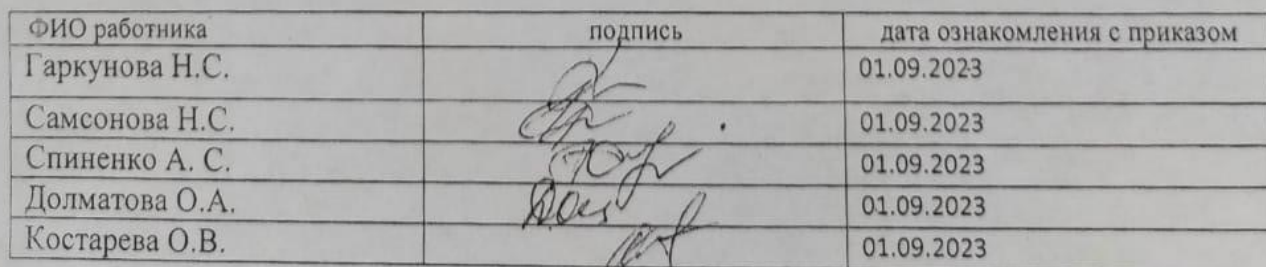 ФИО работника подпись дата ознакомления с приказом
Гаркунова Н.С. 01.09.2023
Самсонова Н.С. 01.09.2023
Спиненко А. С. 01.09.2023
Долматова О.А. 01.09.2023
Костарева О.В. 01.09.2023